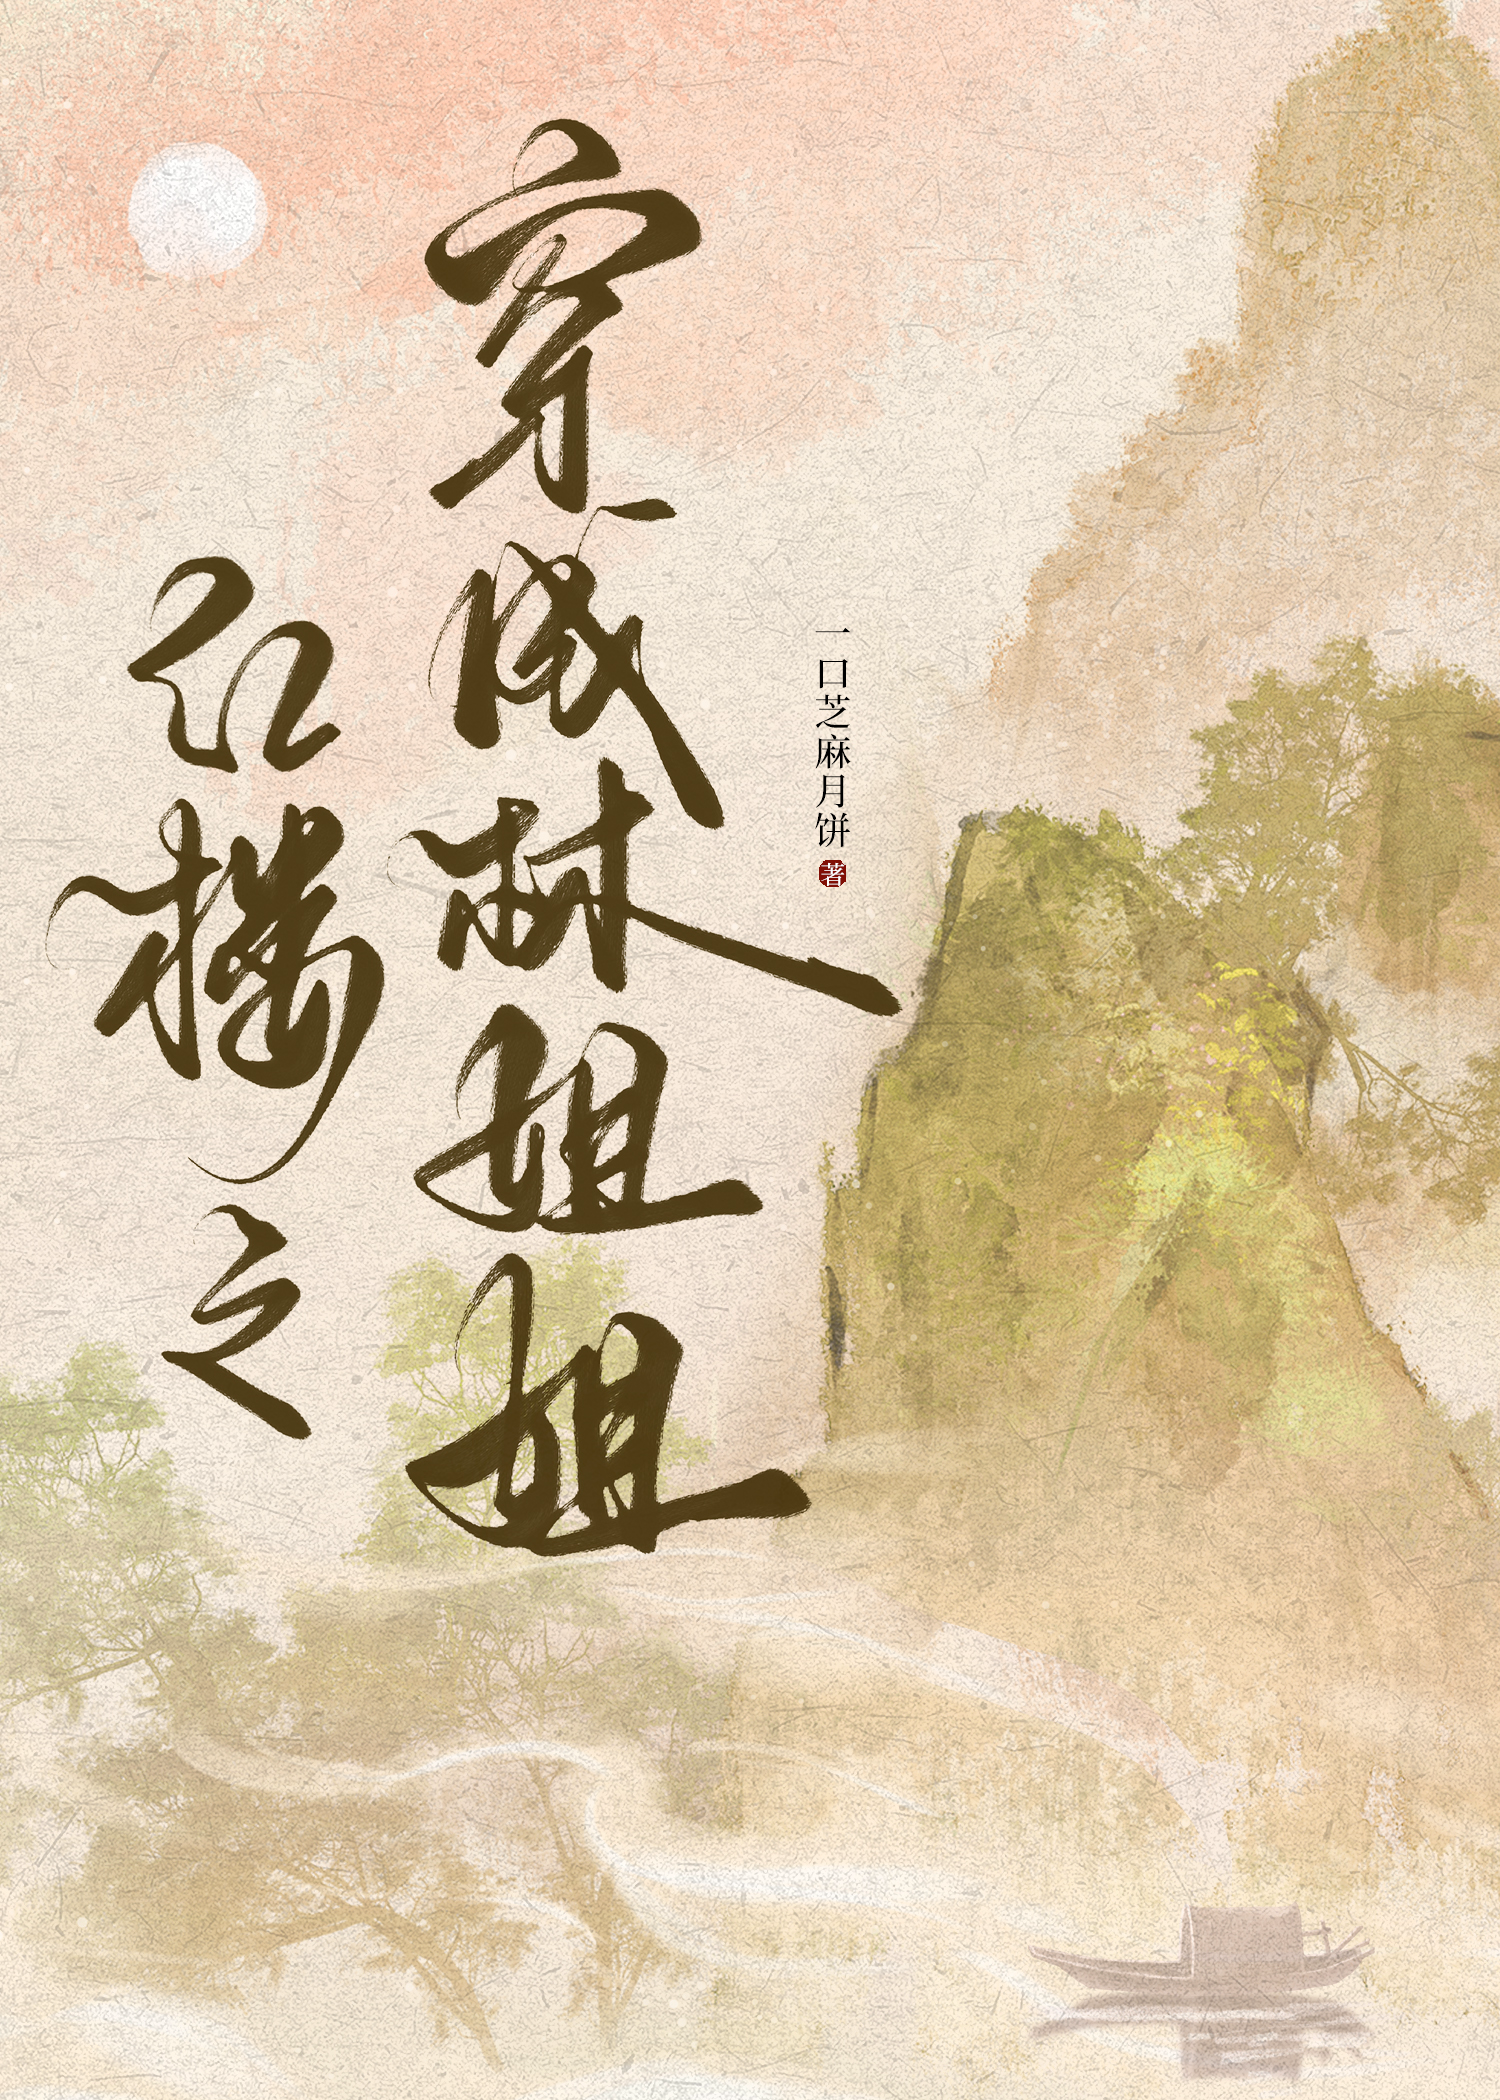 红楼之
穿成林姐姐
一口芝麻月饼 著